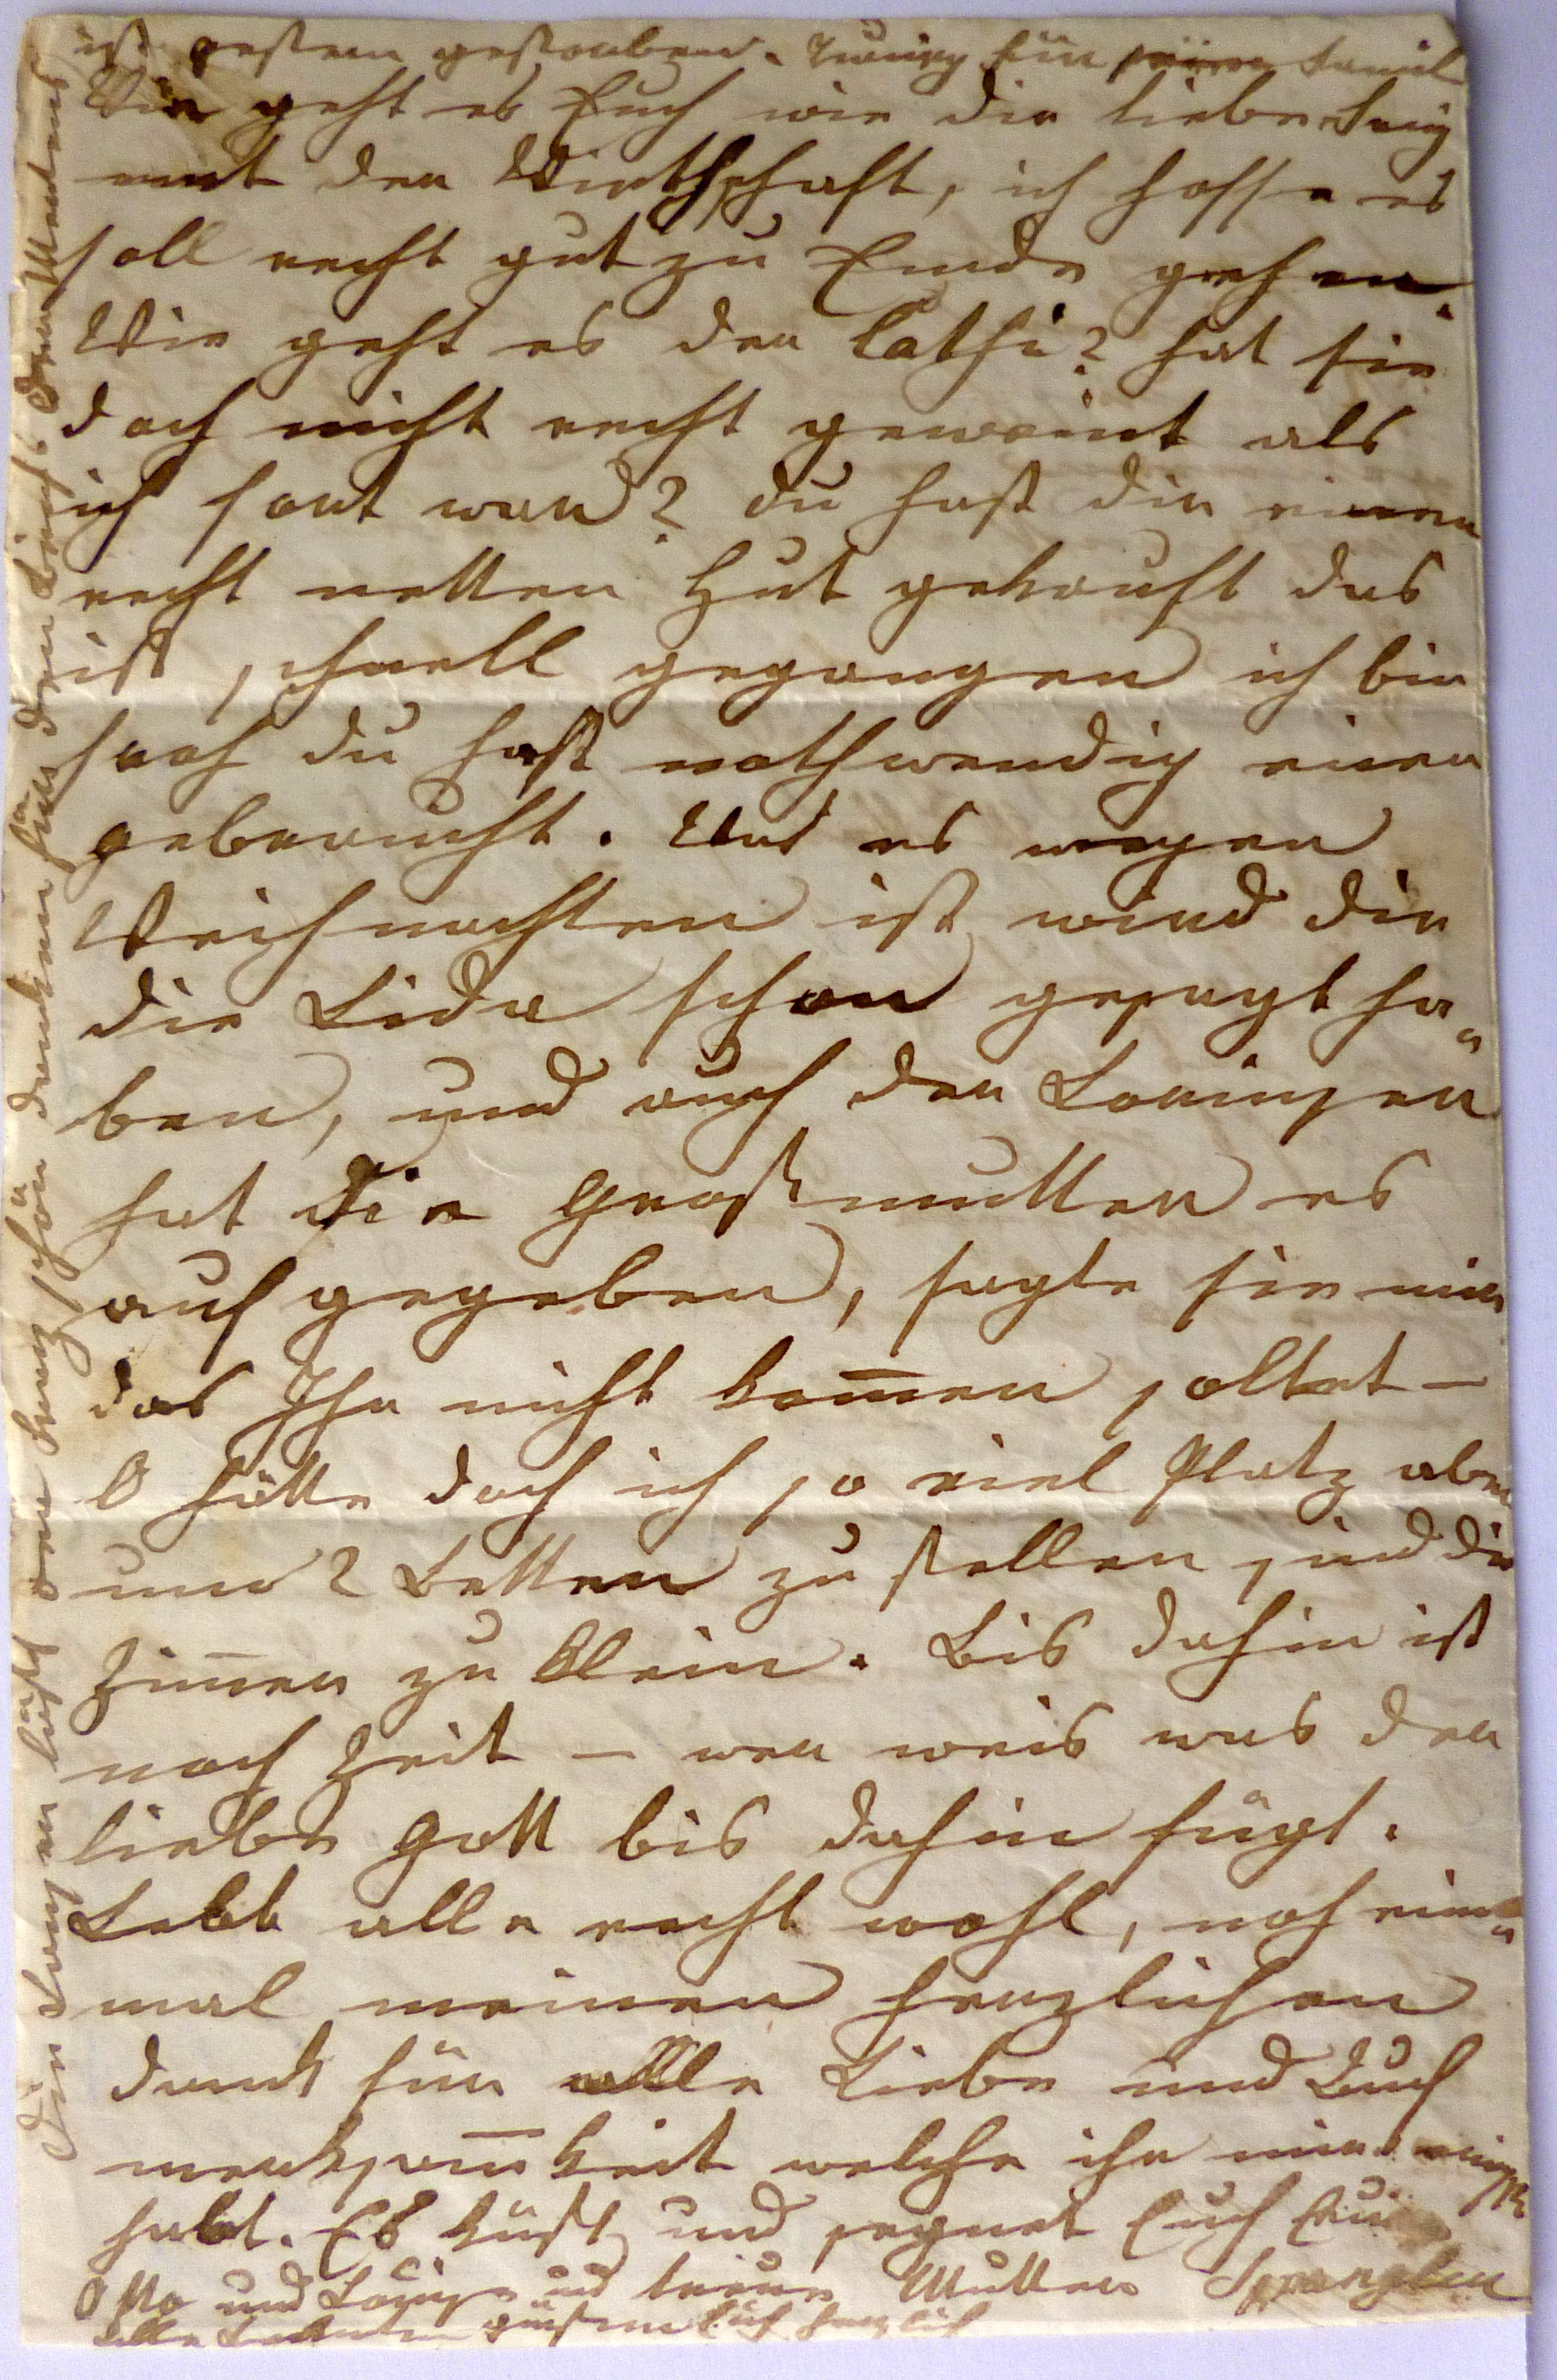 ist gestern gestorben. Traurig für seine Famil
Wie geht es Euch wie die liebe
mit der Wirthschaft, ich hoffe es
soll recht gut zu Ende gehen.
Wie geht es der Cathi? hat sie
doch nicht recht geweint als
ich fort war? du hast dir einen
recht netten Hut gekauft das
ist schnell gegangen ich bin
froh du hast nothwendig einen
gebraucht. Was es wegen
Weihnachten ist wird dir
die Lida schon gesagt ha„
ben, und auch der Louisen
hat die Großmutter es
aufgegeben, sagte sie mir
das Ihr nicht kom̄en soltet —
O hätte doch ich so viel Platz aber
um 2 Betten zu stellen sind die
Zim̄er zu klein. Bis dahin ist
noch Zeit — wer weis was der
liebe Gott bis dahin fügt.
Lebt alle recht wohl, noch ein„
mal meinen herzlichen
Dank für alle Liebe und Auf
merksam̄keit welche ihr mir
habt. Es küßt und segnet Euch Eure
Otto und Louise und treue Mutter Spengler
alle grüßen Euch herzlich
Die Louisen läßt schön danken für den